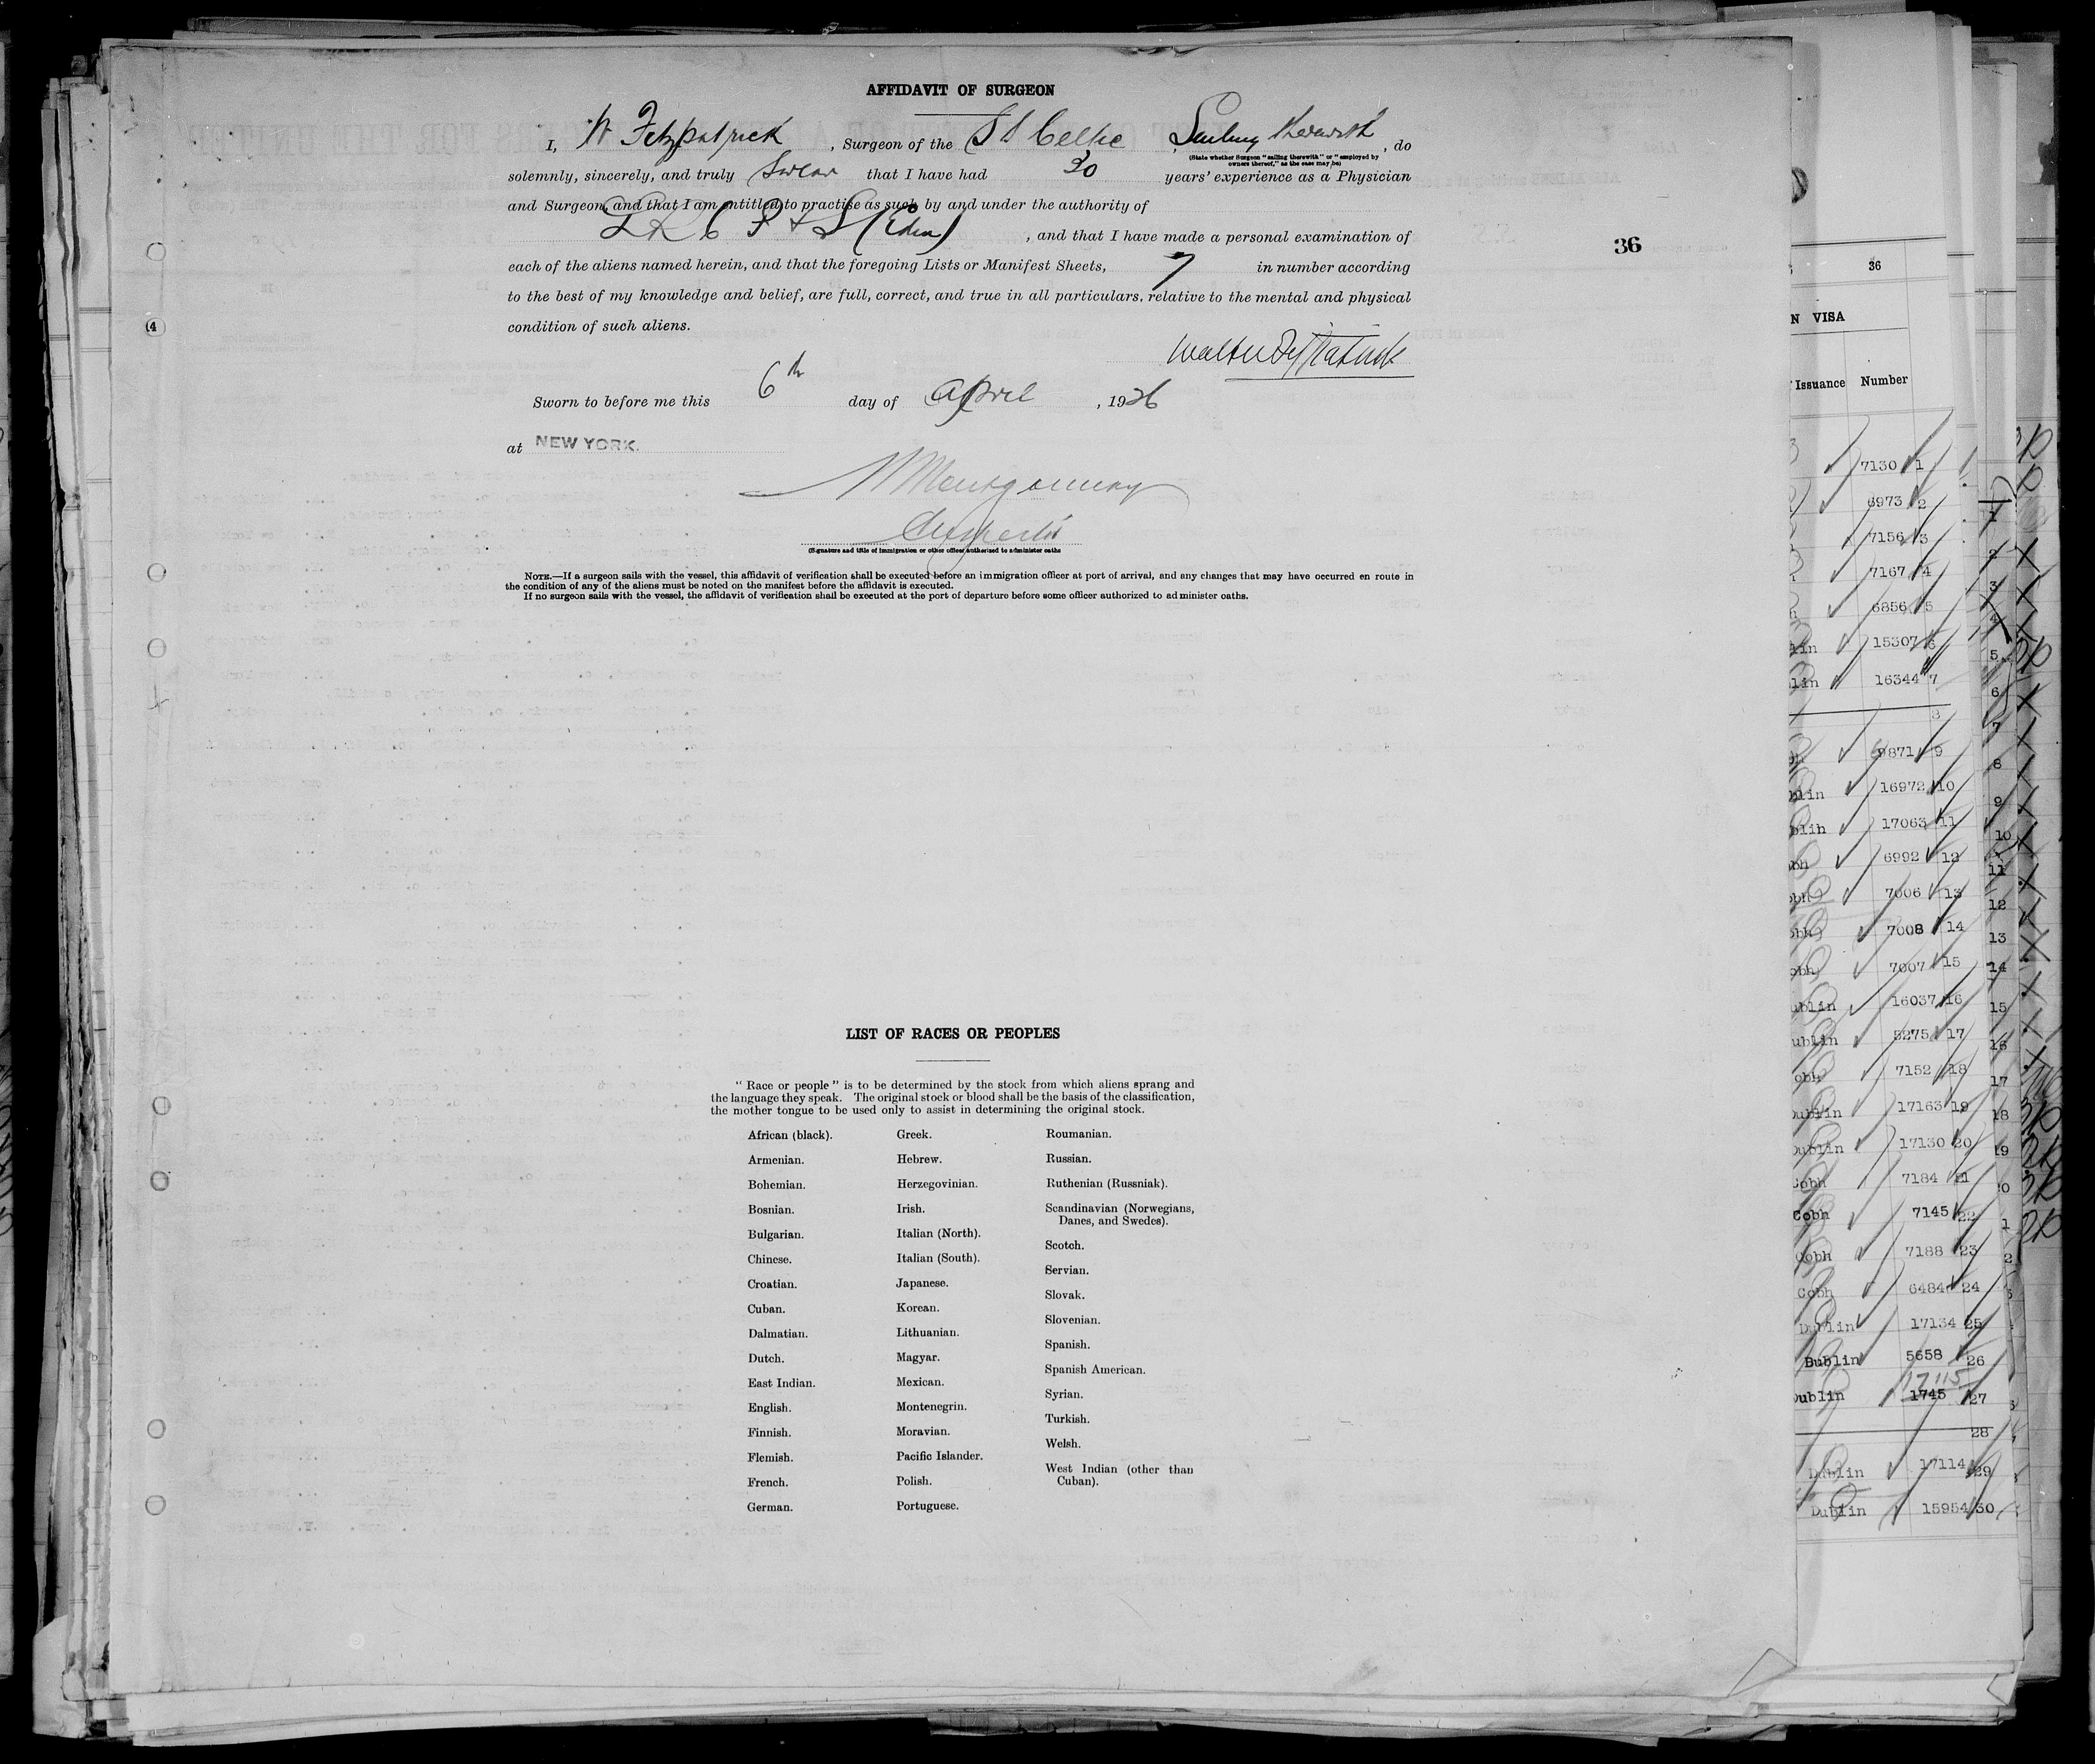 AFFIDAVIT OF SURGEON
I, W Fitzpatrick, Surgeon of the SS Celtic Sailing therewith, do
(State whether Surgeon "sailing therewith" or "employed by
owners thereof," as the case may be)
solemnly, sincerely, and truly swear that I have had 30 years' experience as a Physician
and Surgeon, and that I am entitled to practise as such by and under the authority of
LRC P & S (Edin), and that I have made a personal examination of
each of the aliens named herein, and that the foregoing Lists or Manifest Sheets, 7 in number according
to the best of my knowledge and belief, are full, correct, and true in all particulars, relative to the mental and physical
condition of such aliens.
Walter Fitzpatrick
Sworn to before me this 6th day of April, 1926
at NEW YORK.
Montgomery
(Signature and title of immigration or other officer authorized to administer oaths
NOTE.—If a surgeon sails with the vessel, this affidavit of verification shall be executed before an immigration officer at port of arrival, and any changes that may have occurred en route in
the condition of any of the aliens must be noted on the manifest before the affidavit is executed.
If no surgeon sails with the vessel, the affidavit of verification shall be executed at the port of departure before some officer authorized to administer oaths.
36
(4
LIST OF RACES OR PEOPLES
"Race or people" is to be determined by the stock from which aliens sprang and
the language they speak. The original stock or blood shall be the basis of the classification,
the mother tongue to be used only to assist in determining the original stock.
African (black).
Armenian.
Bohemian.
Bosnian.
Bulgarian.
Chinese.
Croatian.
Cuban.
Dalmatian.
Dutch.
East Indian.
English.
Finnish.
Flemish.
French.
German.
Greek.
Hebrew.
Herzegovinian.
Irish.
Italian (North).
Italian (South).
Japanese.
Korean.
Lithuanian.
Magyar.
Mexican.
Montenegrin.
Moravian.
Pacific Islander.
Polish.
Portuguese.
Roumanian.
Russian.
Ruthenian (Russniak).
Scandinavian (Norwegians,
Danes, and Swedes).
Scotch.
Servian.
Slovak.
Slovenian.
Spanish.
Spanish American.
Syrian.
Turkish.
Welsh.
West Indian (other than
Cuban).
36
N VISA
Issuance Number
7130 1
6973 2
7156 3
7167 4
6856 5
lin 15307 6
lin 16344 7
8
9871 9
blin 16972 10
blin 17063 11
bh 6992 12
obh 7006 13
obh 7008 14
obh 7007 15
ublin 16037 16
ublin 5275 17
obh 7152 18
ublin 17163 19
Dublin 17130 20
Cobh 7184 21
Cobh 7145 22
Cobh 7188 23
Cobh 6484 24
Dublin 17134 25
Dublin 5658 26
17115
Dublin 1745 27
28
Dublin 17114 29
Dublin 15954 30